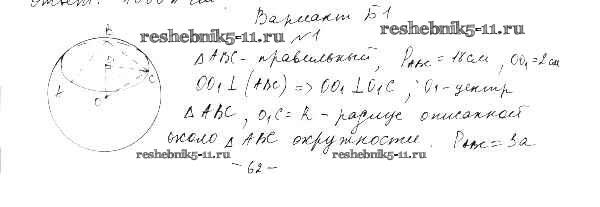 Вариант Б1
reshebnik5-11.ru
№1
B
A
C
O
O₁
△ABC - правильный, P_ABC = 18 см, OO₁ = 2 см
OO₁ ⊥ (ABC) => OO₁ ⊥ O₁C, O₁ - центр
△ABC, O₁C = R - радиус описанной
около △ABC окружности. P_ABC = 3a
reshebnik5-11.ru reshebnik5-11.ru
- 62 -